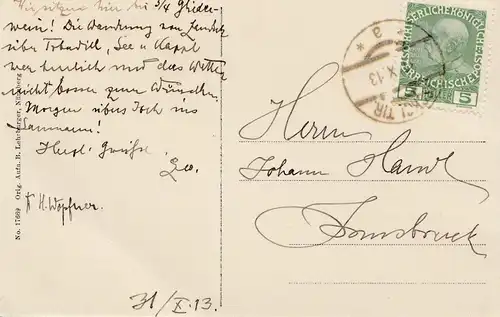 Wir sitzen hier bei 3/4 Glühwein! Die Wanderung von Landeck
über Tobadill, See u Kappl
war herrlich und das Wetter
nicht besser zum Wünschen.
Morgen übers Joch ins
Paznaun!
Herzl. Grüße
H. Wopfner.
31/X.13.
No. 17669 Orig. Aufn. B. Lehrburger, Nürnberg
KAISERLICHE KÖNIGLICHE
ÖSTERREICHISCHE
5 5
TIR
X 13
* a *
Herrn
Johann
Innsbruck